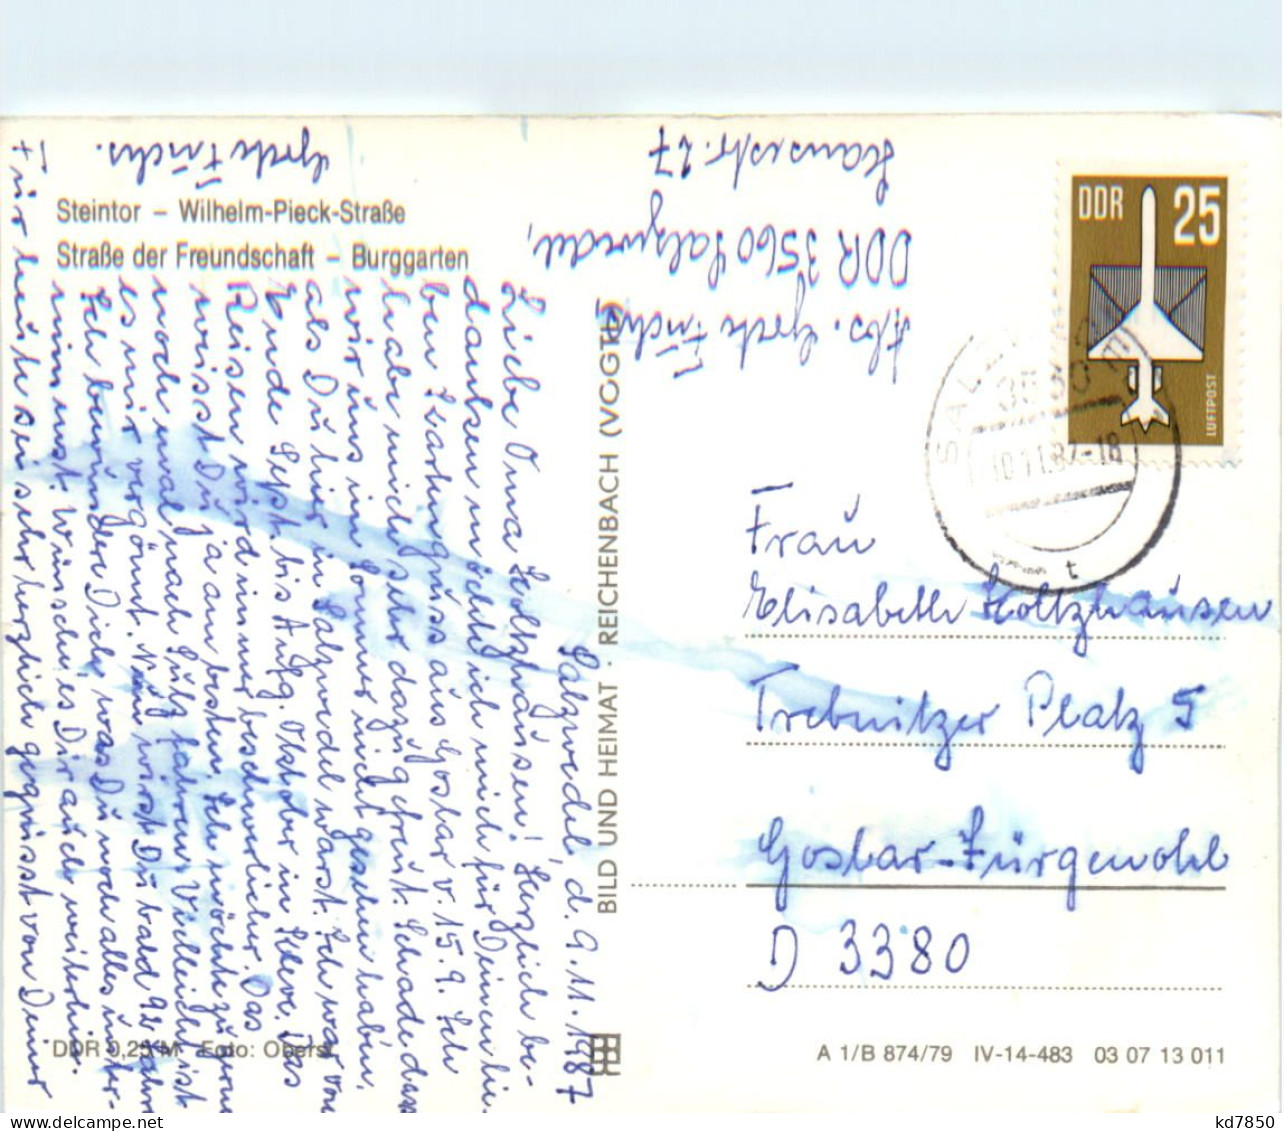 Steintor – Wilhelm-Pieck-Straße
Straße der Freundschaft – Burggarten
Salzwedel d. 9.11.1987
Liebe Oma Holtzhausen! Herzlich be-
danken möchte ich mich für Deinen lie-
ben Kartengruss aus Goslar v. 15.9. Ich
habe mich sehr dazu gefreut. Schade dass
wir uns im Sommer nicht gesehen haben,
als Du hier in Salzwedel warst. Ich war von
Ende Sept. bis Anfg. Oktober in Kleve. Das
Reisen wird immer beschwerlicher. Das
weisst Du ja am besten. Ich möchte zu gern
noch mal nach Sulz fahren. Vielleicht ist
es mir vergönnt. Nun wirst Du bald 92 Jahre
Ich bewundere Dich, was Du noch alles unter-
nimmst. Wünsche es Dir auch weiterhin.
Für heute sei sehr herzlich gegrüsst von Deiner
+ Grete Fuchs.
BILD UND HEIMAT · REICHENBACH (VOGTL)
Abs. Grete Fuchs,
DDR 3560 Salzwedel,
27
DDR 25
LUFTPOST
10.11.87-18
t
Frau
Elisabeth Holtzhausen
Trebnitzer Platz 5
Goslar-Jürgenohl
D 3380
DDR 0,25 M Foto: Oberst
A 1/B 874/79 IV-14-483 03 07 13 011
delcampe.net
kd7850